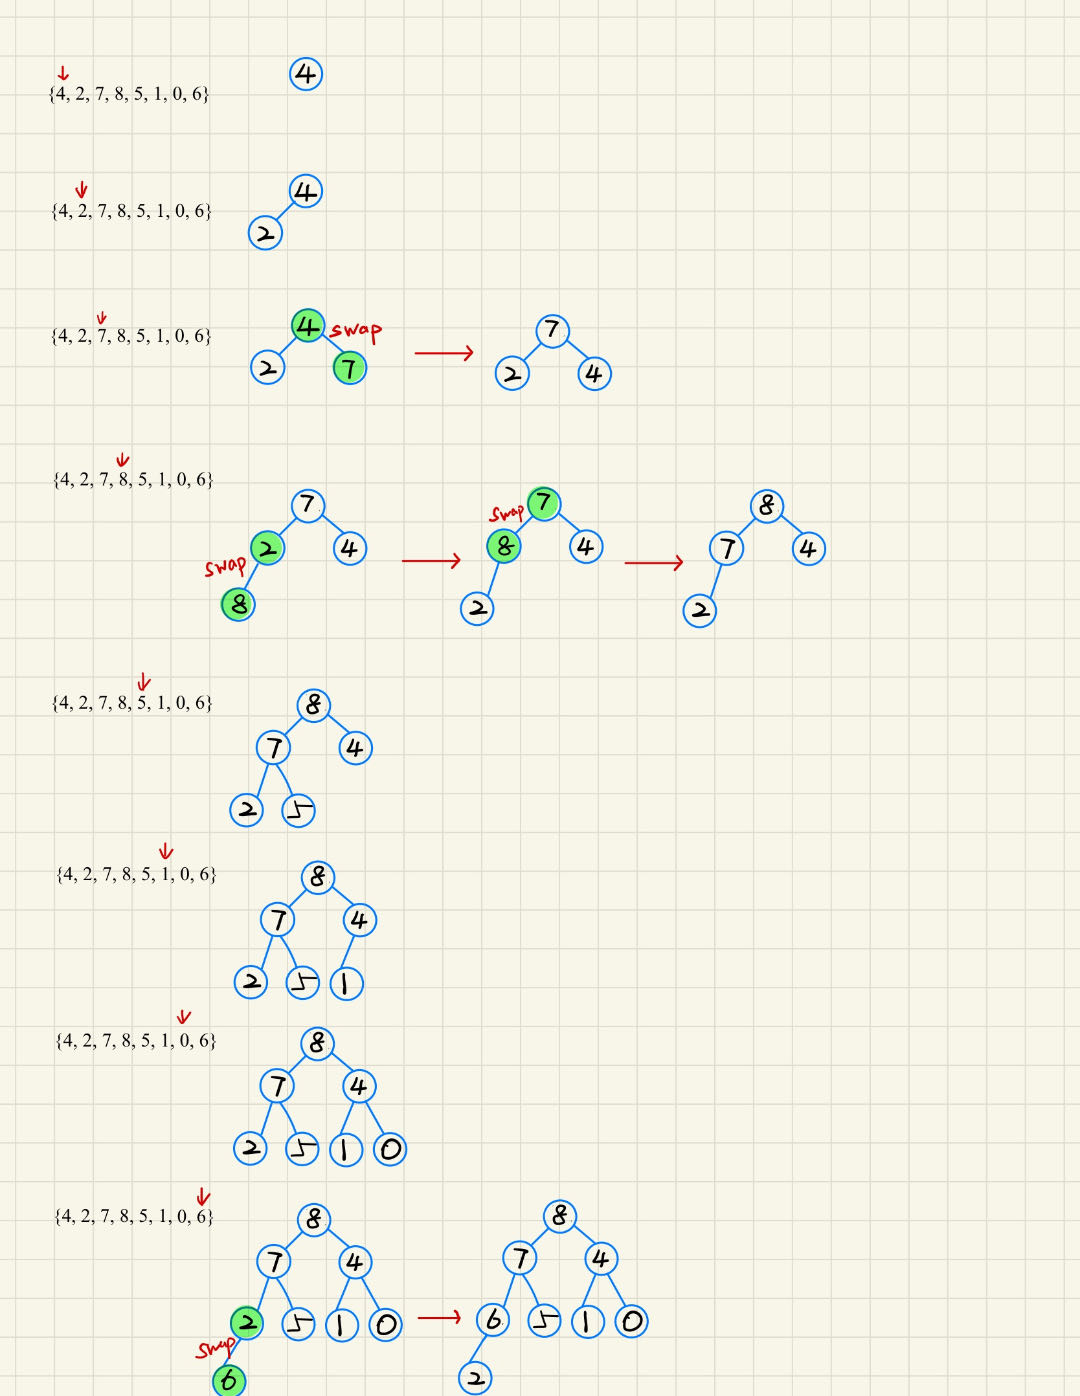 {4, 2, 7, 8, 5, 1, 0, 6}
4
{4, 2, 7, 8, 5, 1, 0, 6}
4
2
{4, 2, 7, 8, 5, 1, 0, 6}
4 swap
2 7
7
2 4
{4, 2, 7, 8, 5, 1, 0, 6}
7
2 4
swap
8
7
swap
8 4
2
8
7 4
2
{4, 2, 7, 8, 5, 1, 0, 6}
8
7 4
2 5
{4, 2, 7, 8, 5, 1, 0, 6}
8
7 4
2 5 1
{4, 2, 7, 8, 5, 1, 0, 6}
8
7 4
2 5 1 0
{4, 2, 7, 8, 5, 1, 0, 6}
8
7 4
2 5 1 0
swap
6
8
7 4
6 5 1 0
2